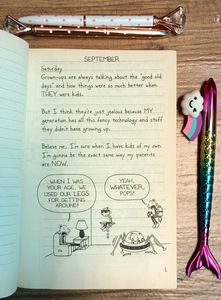 SEPTEMBER
Saturday
Grown-ups are always talking about the "good old
days" and how things were so much better when
THEY were kids.
But I think they're just jealous because MY
generation has all this fancy technology and stuff
they didn't have growing up.
Believe me, I'm sure when I have kids of my own
I'm gonna be the exact same way my parents
are NOW.
WHEN I WAS
YOUR AGE, WE
USED OUR LEGS
FOR GETTING
AROUND!
YEAH,
WHATEVER,
POPS!
1